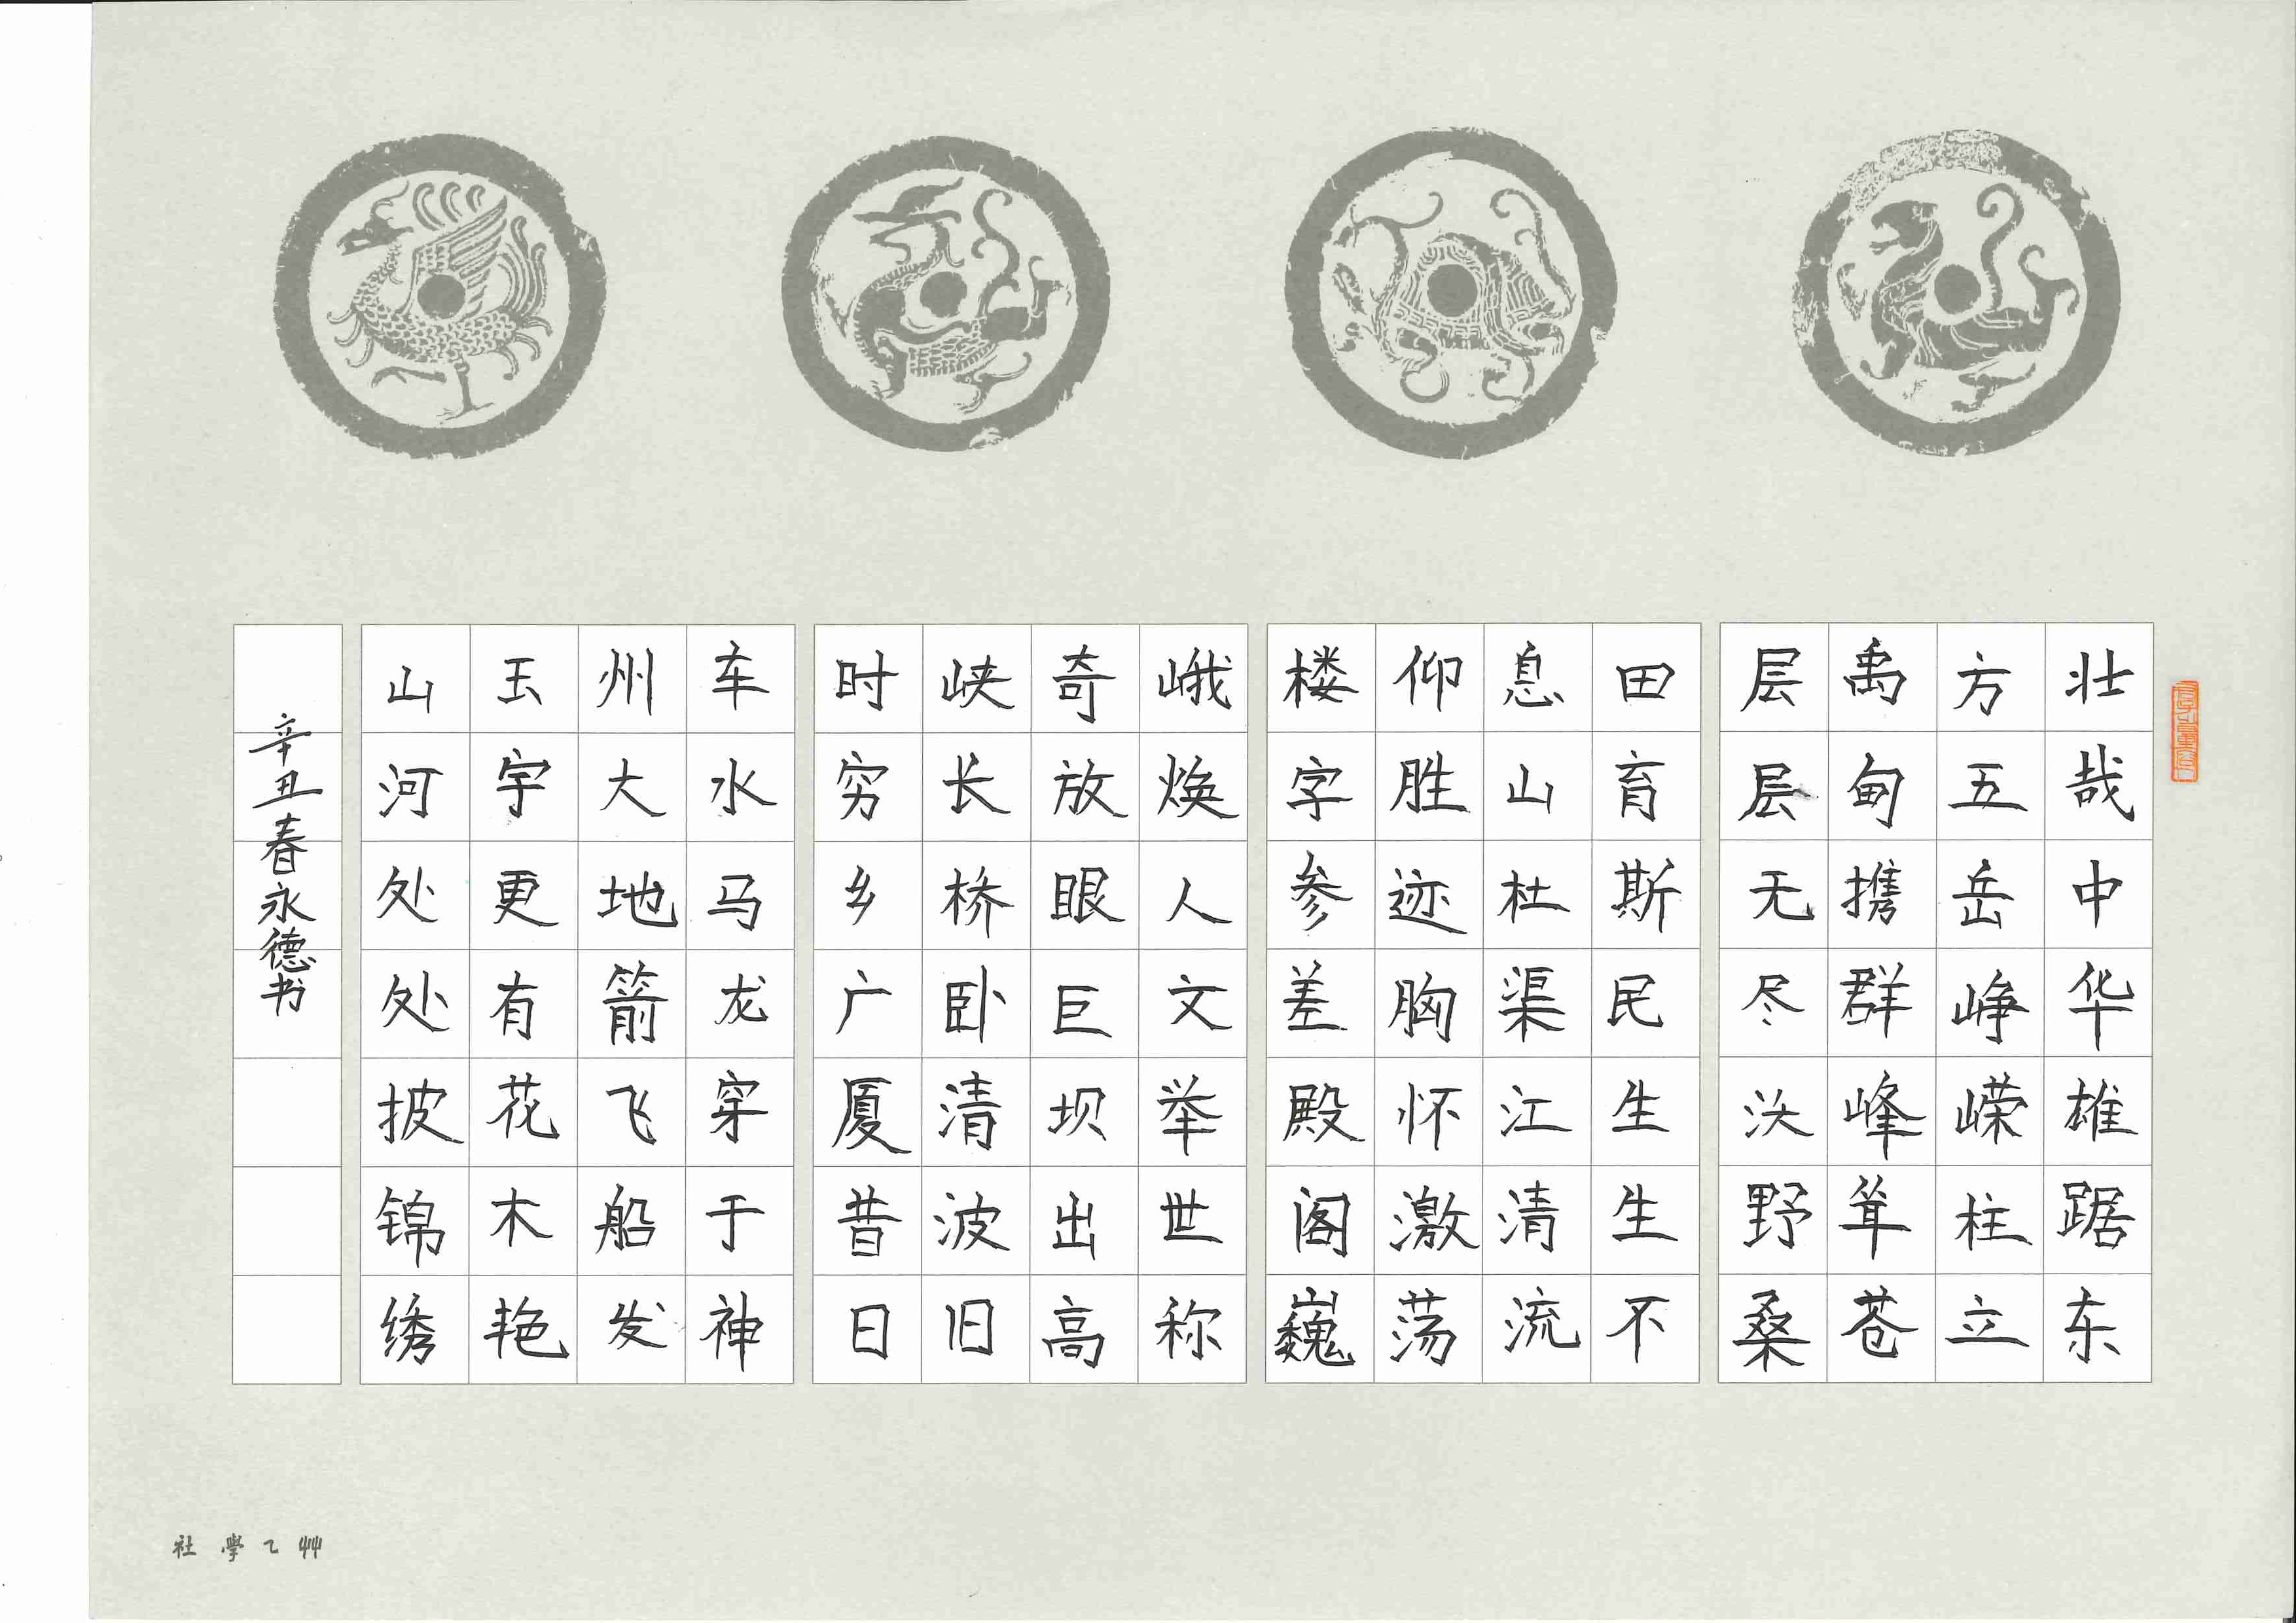 壮哉中华雄踞东
方五岳峥嵘柱立
禹甸携群峰耸苍
层层无尽沃野桑
田育斯民生生不
息山杜渠江清流
仰胜迹胸怀激荡
楼字参差殿阁巍
峨焕人文举世称
奇放眼巨坝出高
峡长桥卧清波旧
时穷乡广厦昔日
车水马龙穿于神
州大地箭飞船发
玉宇更有花木艳
山河处处披锦绣
辛丑春永德书
社學乙艸